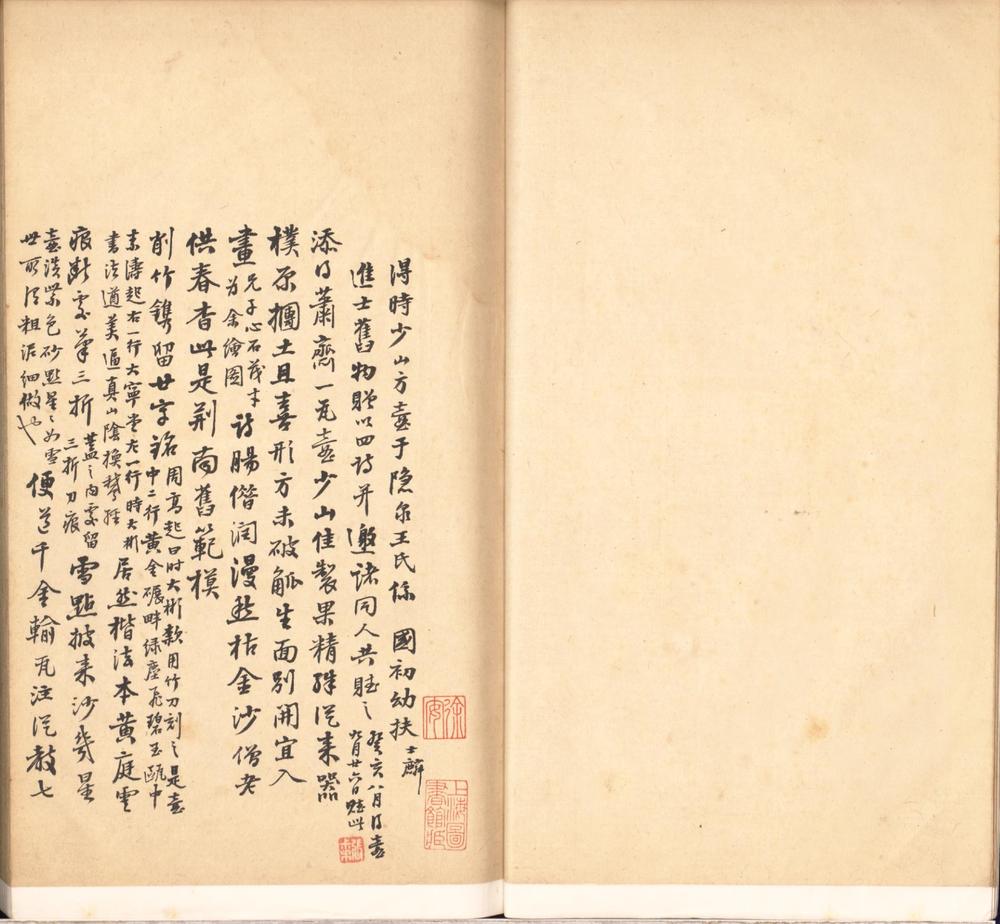 得時少山方壺于隱泉王氏係 國初幼扶士麟
進士舊物贈以四詩并邀諸同人共賦之癸亥八月得壺
九月廿六日賦此
添得蕭齋一瓦壺少山佳製果精殊從來器
樸原摶土且喜形方未破觚生面別開宜入
畫兄子心石茂才
為余繪圖詩腸借潤漫愁枯金沙僧老
供春杳此是荊南舊範模
削竹鐫留廿字銘周高起曰時大彬款用竹刀刻之是壺
中二行黃金碾畔綠塵飛碧玉甌中
素濤起右一行大寧堂左一行時大彬
書法遒美逼真山陰換鵝經居然楷法本黃庭雲
痕斷處筆三折蓋之內處留
三折刀痕雪點披來沙幾星
壺淡紫色砂點星星如雪
世所謂粗泥細做也便道千金輸瓦注從教七
徐安
上海圖書館藏